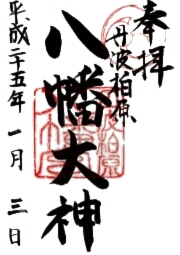 奉拝
丹波柏原
八幡大神
平成二十五年一月三日